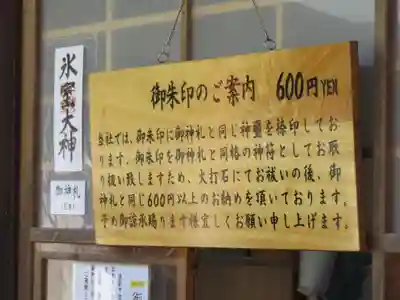 御朱印のご案内 600円 YEN
当社では、御朱印に御神札と同じ神璽を捺印してお
ります。御朱印を御神札と同格の神符としてお取
り扱い致しますため、火打石にてお祓いの後、御
神札と同じ600円以上のお納めを頂いております。
予め御諒承賜ります様宜しくお願い申し上げます。
氷室大神
御神札